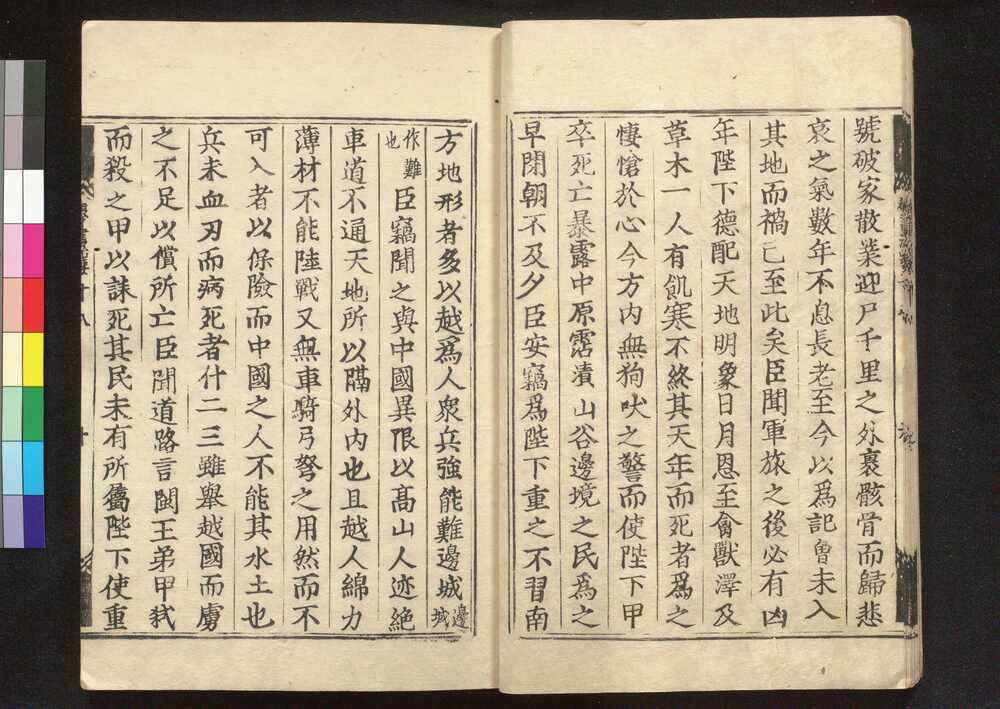 號破家散業迎尸千里之外褁骸骨而歸悲
哀之氣數年不息長老至今以爲記曾未入
其地而禍已至此矣臣聞軍旅之後必有凶
年陛下德配天地明象日月恩至禽獸澤及
草木一人有飢寒不終其天年而死者爲之
悽愴於心今方内無狗吠之警而使陛下甲
卒死亡暴露中原霑漬山谷邊境之民爲之
早閉朝不及夕臣安竊爲陛下重之不習南
方地形者多以越爲人衆兵強能難邊城邊城
作難也臣竊聞之與中國異限以髙山人迹絶
車道不通天地所以隔外内也且越人綿力
薄材不能陸戰又無車騎弓弩之用然而不
可入者以保險而中國之人不能其水土也
兵未血刃而病死者什二三雖舉越國而虜
之不足以償所亡臣聞道路言閩王弟甲弒
而殺之甲以誅死其民未有所屬陛下使重
十八